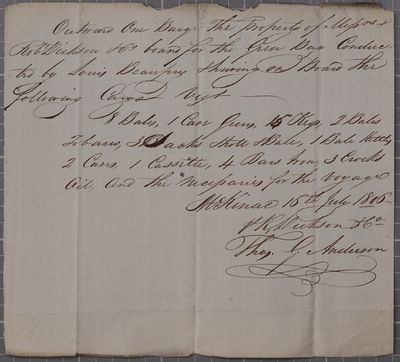 Outward One Barge the property of Messrs
Robt Dickson & Co bound for the Green Bay Conduc
ted by Louis Beaupre Having on Board the
following Cargo Vizt
8 Bales, 1 Case Guns, 15 Kegs, 2 Bales
Tobacco, 3 Sacks 1 Bale Kettles
2 Cans, 1 Cassette, 4 Bars Iron, 3
Oil, and the Necessaries for the voyage
McKinac 15th July 1806
R Dickson & Co
Thos. G. Anderson